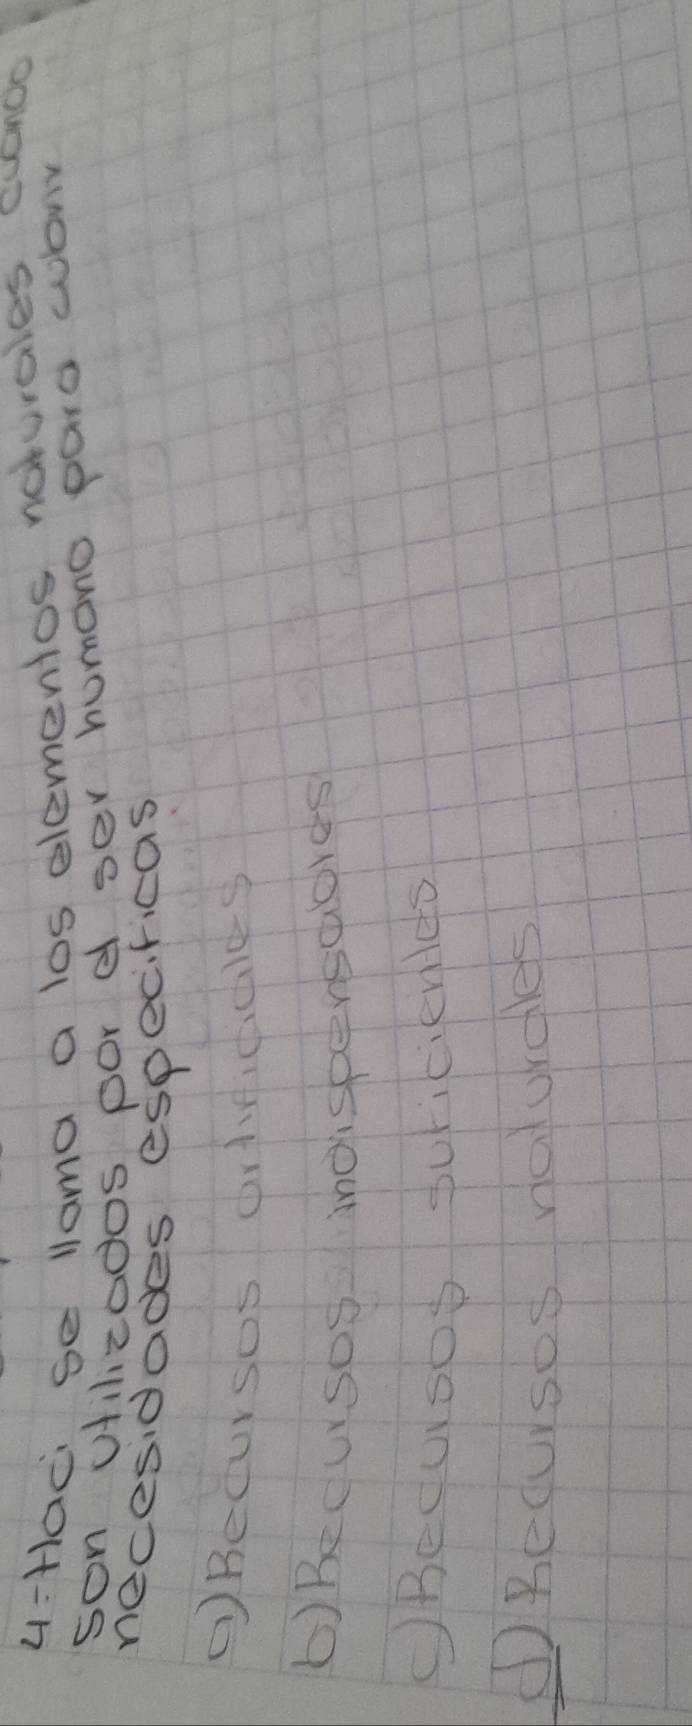 4-Haci se llama a los elementos naturales cuando
son utilizados por el ser humano para cubrir
necesidades especificas
a) Recursos artificiales
b) Recursos indispensables
c) Recursos suficientes
d) Recursos naturales